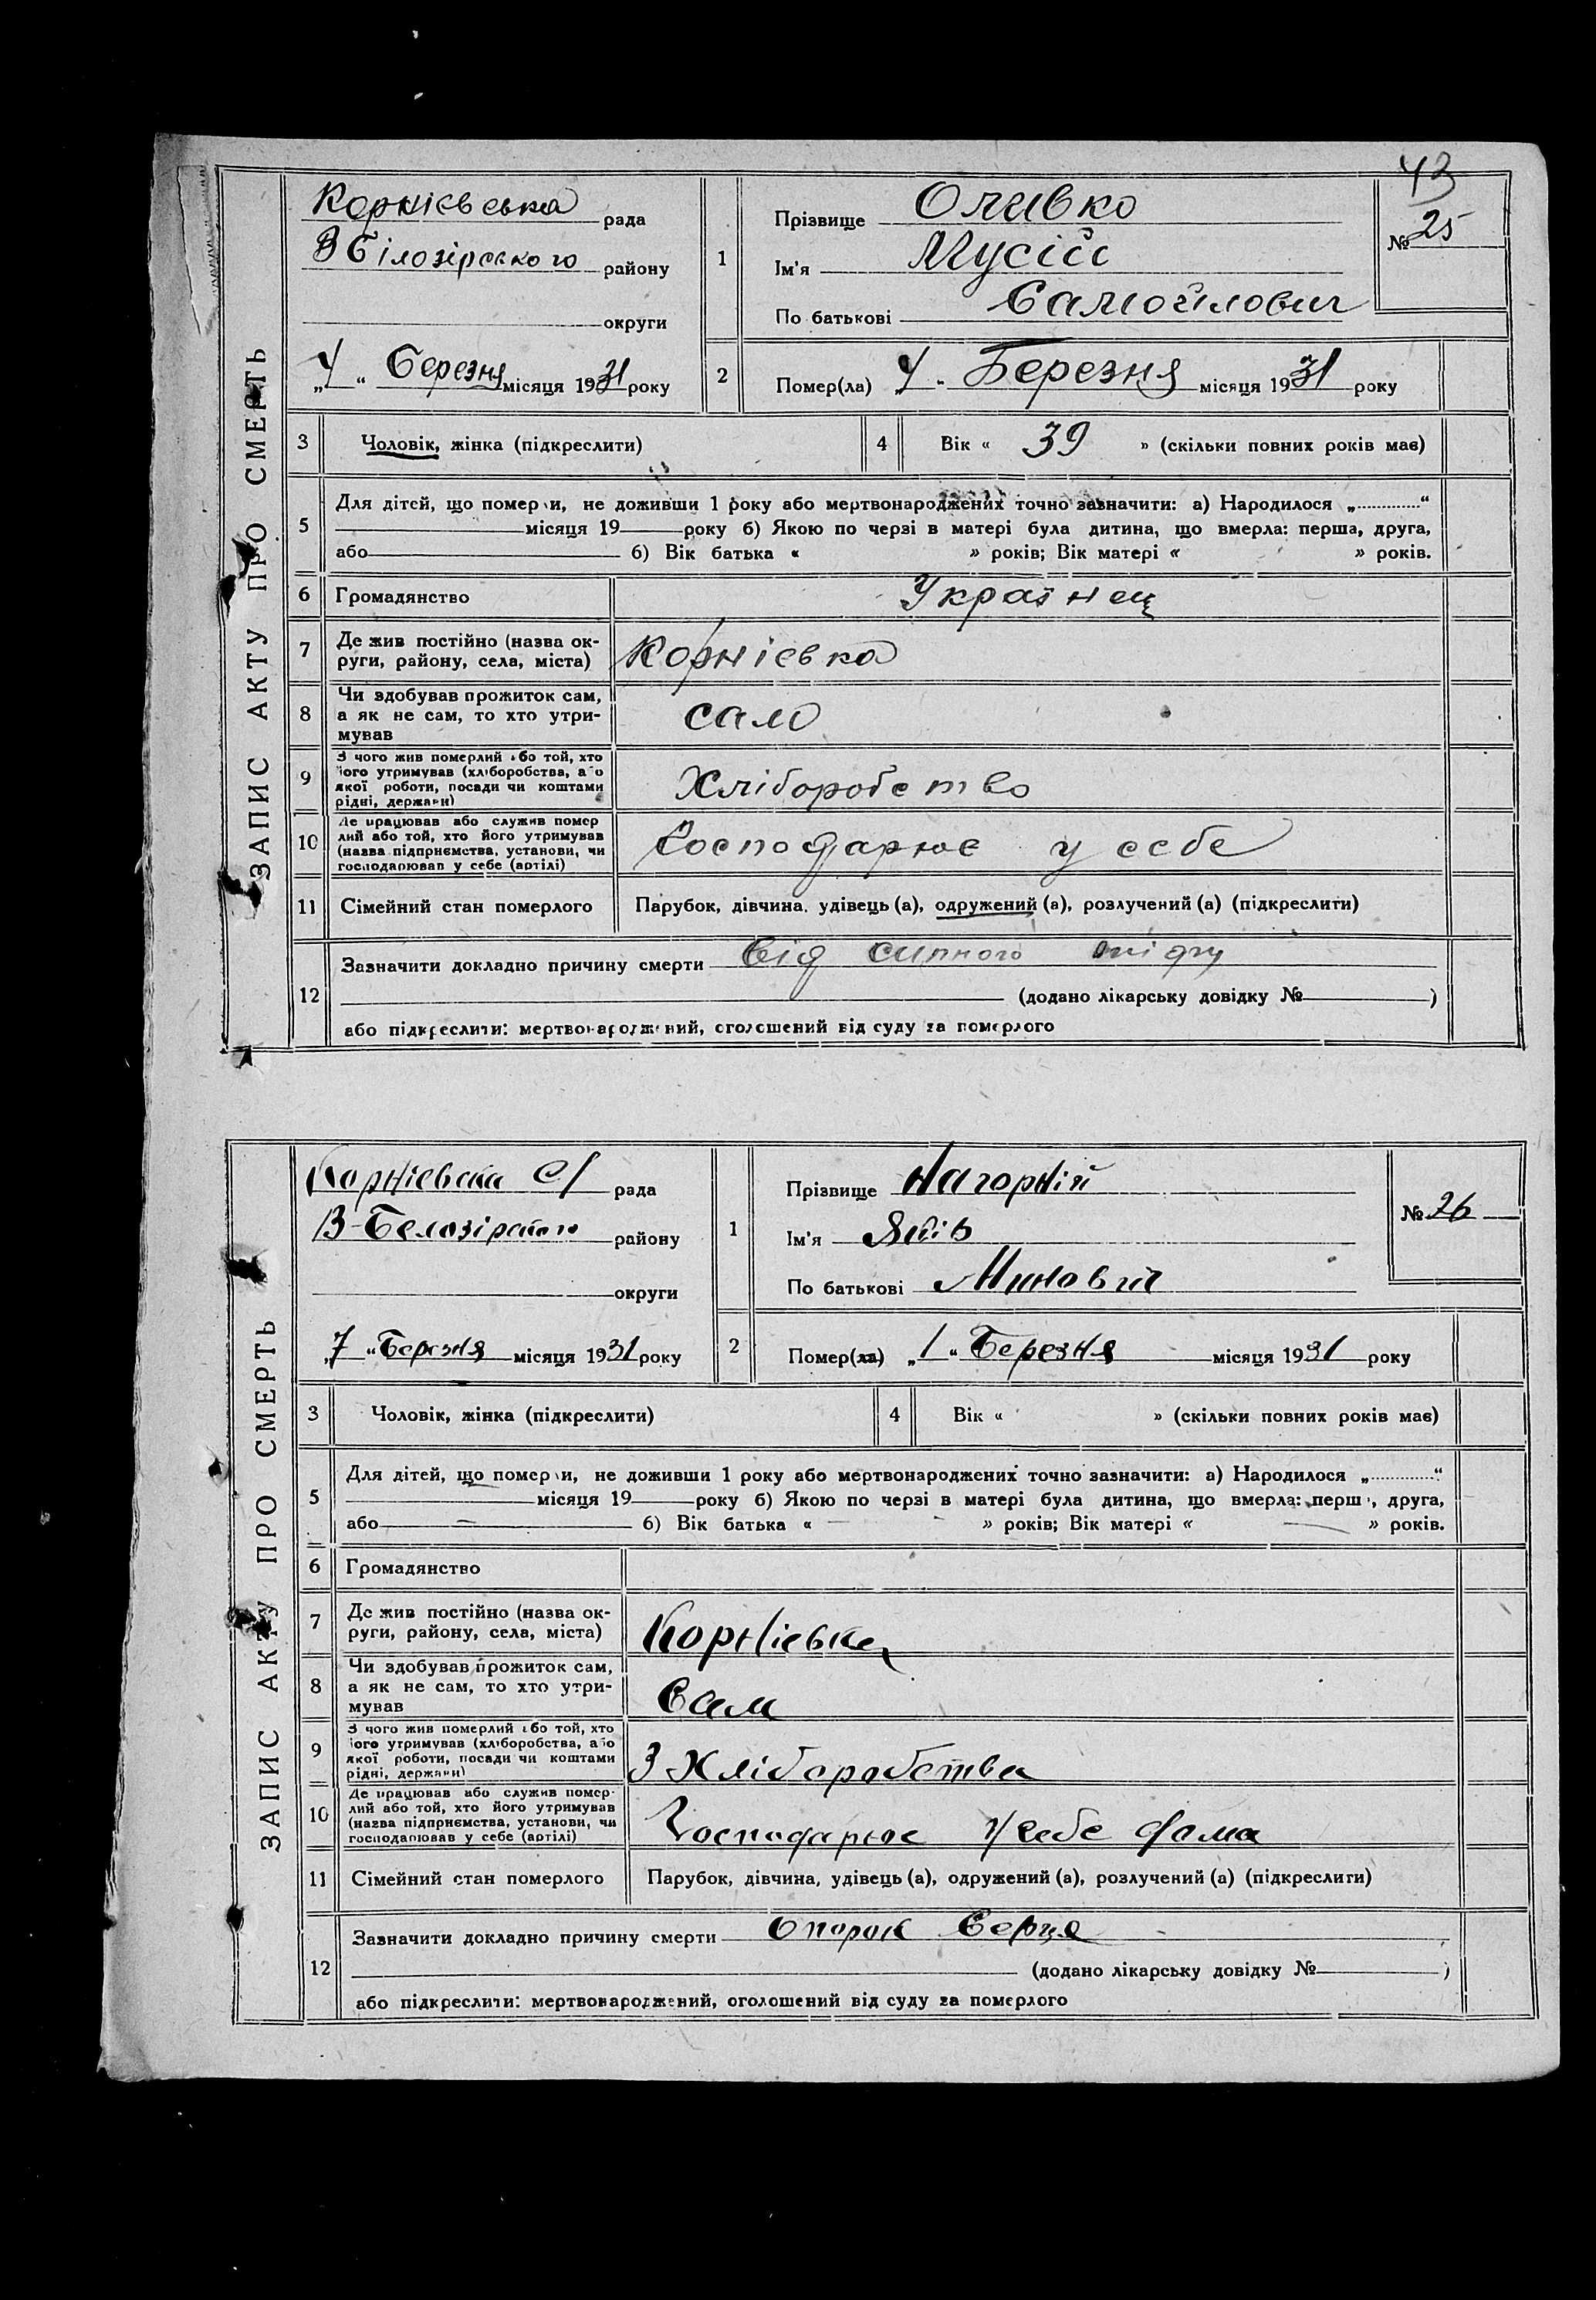 43
Корнієвська рада
В Білозірського району
округи
„4“ Березня місяця 1931 року
1
Прізвище Оливко
Ім'я Мусій
По батькові Самойлович
№ 25
2
Помер(ла) 4 „ Березня місяця 1931 року
ЗАПИС АКТУ ПРО СМЕРТЬ
3 Чоловік, жінка (підкреслити)
4 Вік « 39 » (скільки повних років має)
5 Для дітей, що померли, не доживши 1 року або мертвонароджених точно зазначити: а) Народилося „ “
місяця 19 року б) Якою по черзі в матері була дитина, що вмерла: перша, друга,
або б) Вік батька « » років; Вік матері « » років.
6 Громадянство Українец
7 Де жив постійно (назва ок-
руги, району, села, міста) Корнієвка
8 Чи здобував прожиток сам,
а як не сам, то хто утри-
мував
сам
9 З чого жив померлий або той, хто
його утримував (хліборобства, або
якої роботи, посади чи коштами
рідні, держави)
Хліборобство
10 Де працював або служив помер
лий або той, хто його утримував
(назва підприємства, установи, чи
господарював у себе (артілі)
Господарює у себе
11 Сімейний стан померлого Парубок, дівчина, удівець (а), одружений (а), розлучений (а) (підкреслити)
12 Зазначити докладно причину смерти від сипного
(додано лікарську довідку № )
або підкреслити: мертвонароджений, оголошений від суду за померлого
Корнієвська с/ рада
В-Белозірського району
округи
„7“ Березня місяця 1931 року
1
Прізвище Нагорній
Ім'я Яків
По батькові Минович
№ 26
2
Помер(ла) „1“ Березня місяця 1931 року
ЗАПИС АКТУ ПРО СМЕРТЬ
3 Чоловік, жінка (підкреслити)
4 Вік « » (скільки повних років має)
5 Для дітей, що померли, не доживши 1 року або мертвонароджених точно зазначити: а) Народилося „ “
місяця 19 року б) Якою по черзі в матері була дитина, що вмерла: перша, друга,
або — б) Вік батька « — » років; Вік матері « — » років.
6 Громадянство
7 Де жив постійно (назва ок-
руги, району, села, міста) Корнієвка
8 Чи здобував прожиток сам,
а як не сам, то хто утри-
мував
Сам
9 З чого жив померлий або той, хто
його утримував (хліборобства, або
якої роботи, посади чи коштами
рідні, держави)
З Хліборобства
10 Де працював або служив помер-
лий або той, хто його утримував
(назва підприємства, установи, чи
господарював у себе (артілі)
Господарює У себе дома
11 Сімейний стан померлого Парубок, дівчина, удівець (а), одружений (а), розлучений (а) (підкреслити)
12 Зазначити докладно причину смерти Опорок Серця
(додано лікарську довідку № )
або підкреслити: мертвонароджений, оголошений від суду за померлого